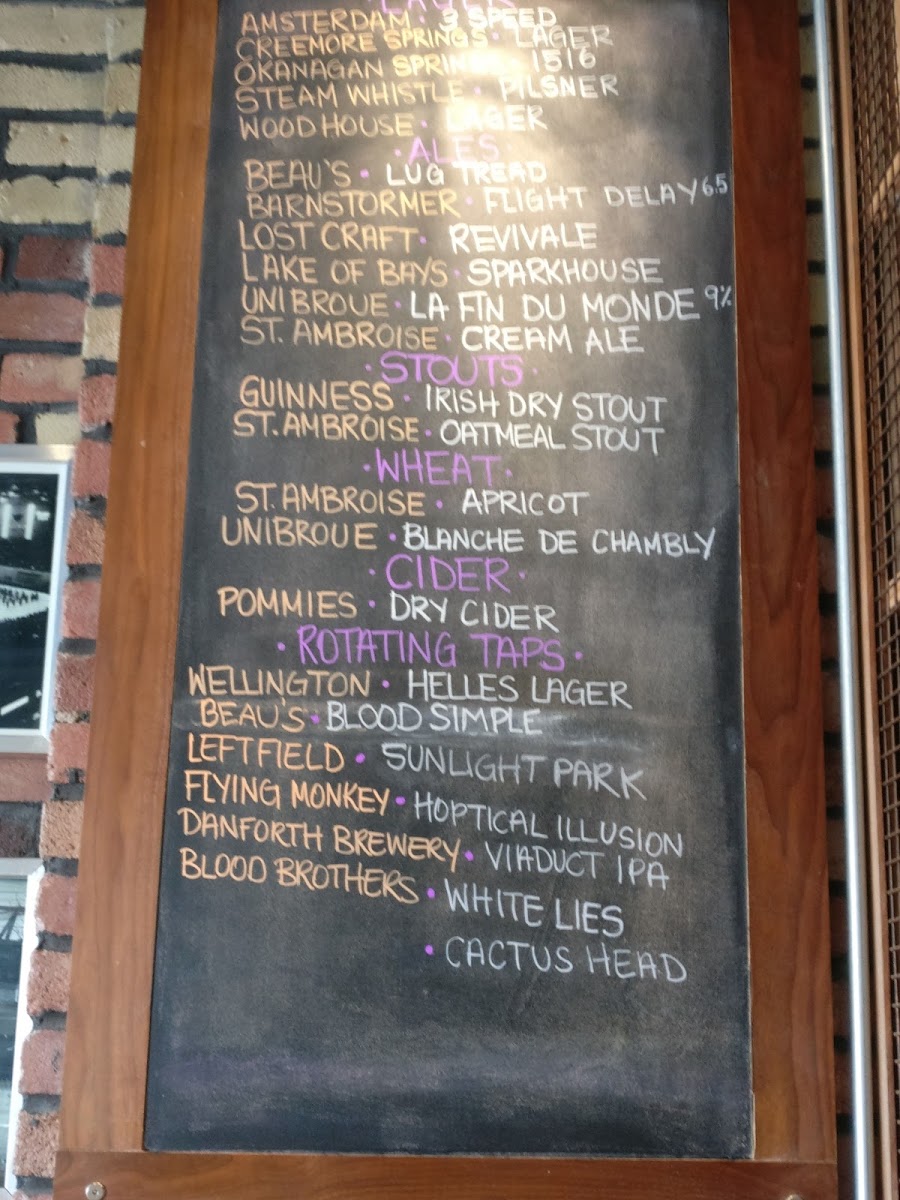 LAGERS
AMSTERDAM · 3 SPEED
CREEMORE SPRINGS · LAGER
OKANAGAN SPRING · 1516
STEAM WHISTLE · PILSNER
WOODHOUSE · LAGER
· ALES ·
BEAU'S · LUG TREAD
BARNSTORMER · FLIGHT DELAY 6.5
LOST CRAFT · REVIVALE
LAKE OF BAYS · SPARKHOUSE
UNIBROUE · LA FIN DU MONDE 9%
ST. AMBROISE · CREAM ALE
· STOUTS ·
GUINNESS · IRISH DRY STOUT
ST. AMBROISE · OATMEAL STOUT
· WHEAT ·
ST. AMBROISE · APRICOT
UNIBROUE · BLANCHE DE CHAMBLY
· CIDER ·
POMMIES · DRY CIDER
· ROTATING TAPS ·
WELLINGTON · HELLES LAGER
BEAU'S · BLOOD SIMPLE
LEFTFIELD · SUNLIGHT PARK
FLYING MONKEY · HOPTICAL ILLUSION
DANFORTH BREWERY · VIADUCT IPA
BLOOD BROTHERS · WHITE LIES
· CACTUS HEAD